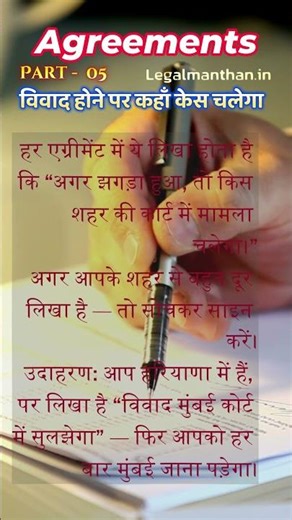 Agreements
PART - 05
Legalmanthan.in
विवाद होने पर कहाँ केस चलेगा
हर एग्रीमेंट में ये लिखा होता है
कि “अगर झगड़ा हुआ, तो किस
शहर की कोर्ट में मामला
चलेगा।”
अगर आपके शहर से बहुत दूर
लिखा है — तो सोचकर साइन
करें।
उदाहरण: आप हरियाणा में हैं,
पर लिखा है “विवाद मुंबई कोर्ट
में सुलझेगा” — फिर आपको हर
बार मुंबई जाना पड़ेगा।